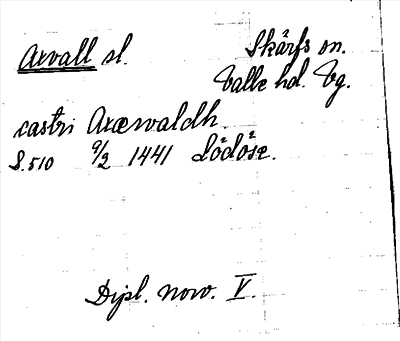 Axvall sl. Skärfs sn.
Valle hd. Vg.
castri Axewaldh.
S. 510 9/2 1441 Lödöse.
Dipl. norv. V.